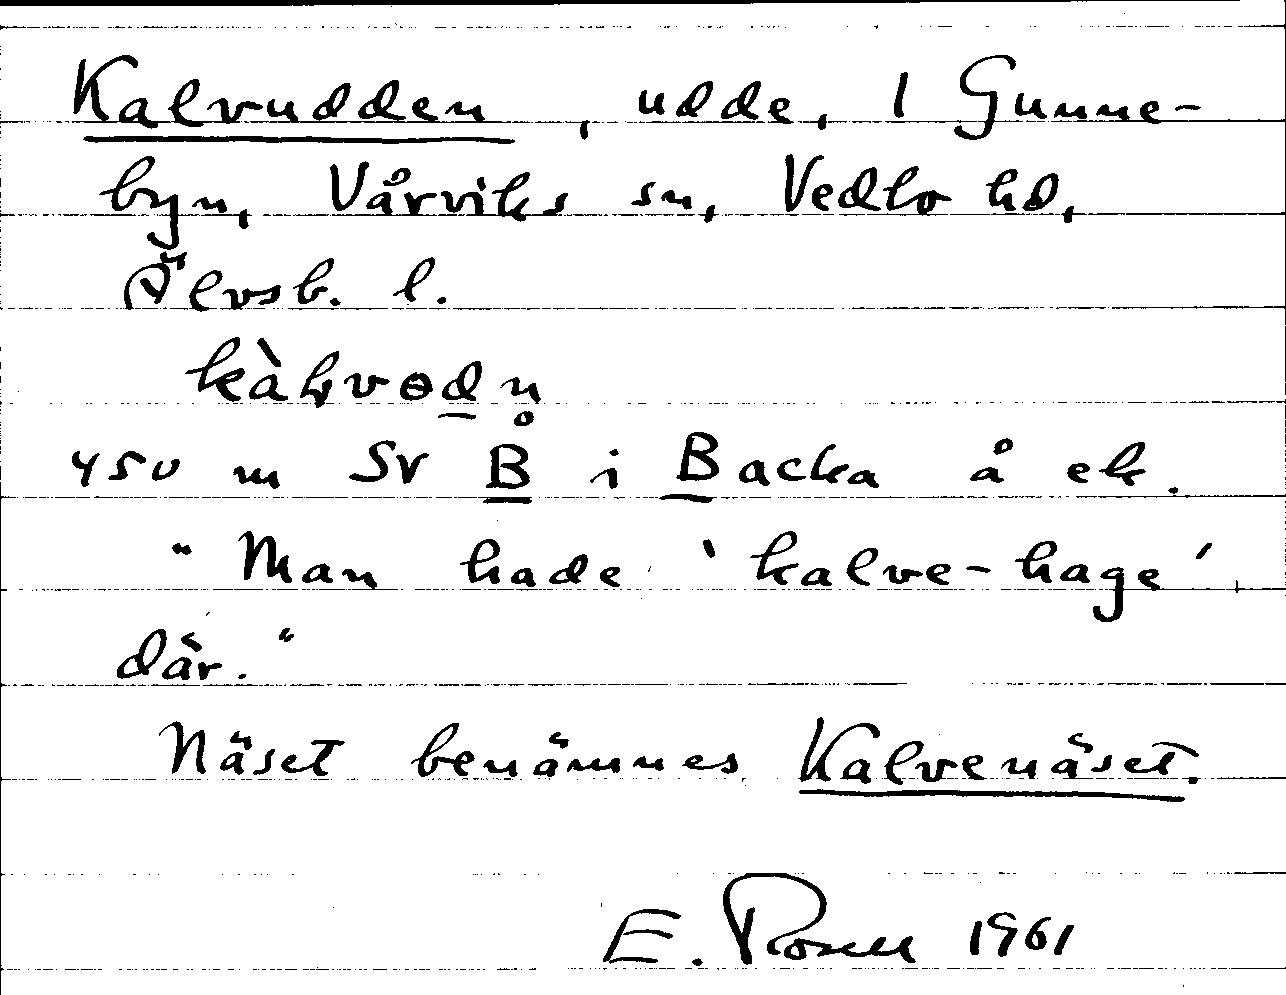 Kalvudden, udde, 1 Gunne-
byn, Vårviks sn, Vedbo hd,
Älvsb. l.
450 m SV B i Backa å ek.
"Man hade 'kalve-hage'
där."
Näset benämnes Kalvenäset.
E. Rosell 1961